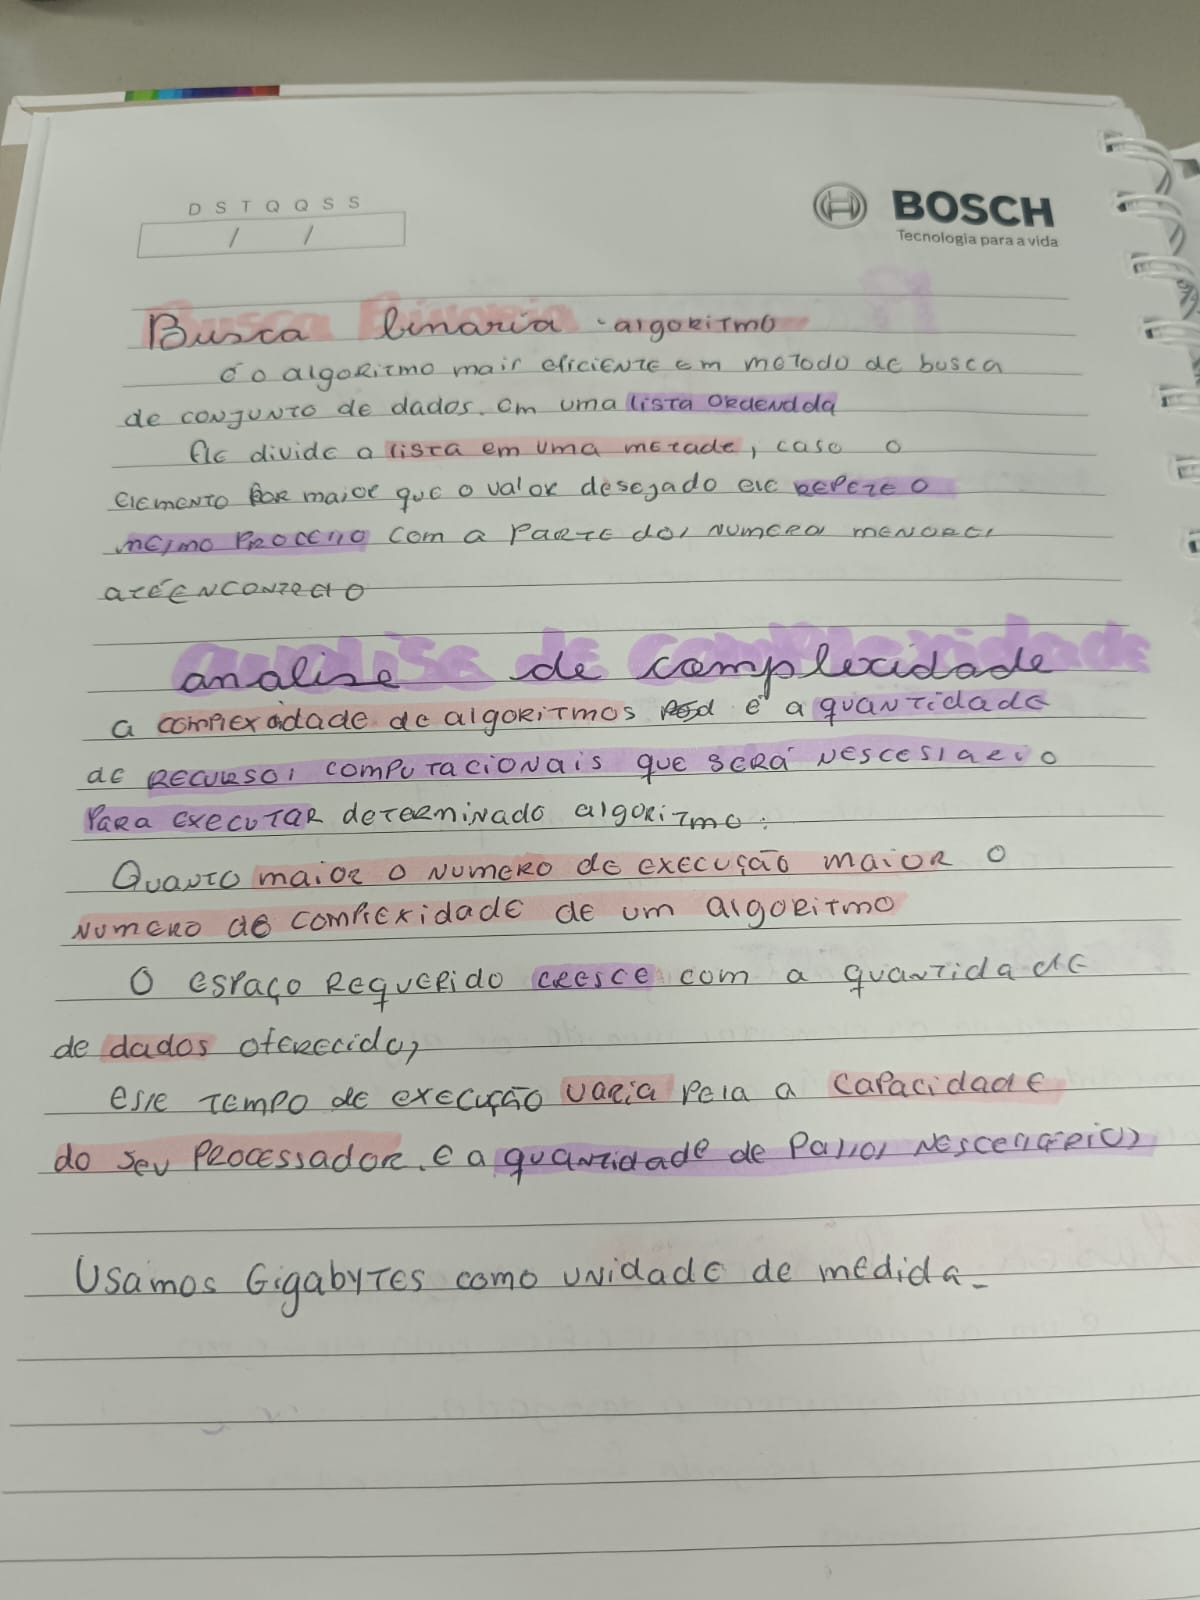 D S T Q Q S S
/ /
BOSCH
Tecnologia para a vida
Busca binaria - algoritmo
é o algoritmo mais eficiente em metodo de busca
de conjunto de dados. em uma lista ordendda
Ele divide a lista em uma metade, caso o
elemento for maior que o valor desejado ele repete o
mesmo processo com a parte dos numeros menores
até encontralo
analise de complexidade
a complexidade de algoritmos é a quantidade
de recursos computacionais que será nescessario
para executar determinado algoritmo.
Quanto maior o numero de execução maior o
numero de complexidade de um algoritmo
O espaço requerido cresce com a quantidade
de dados oferecidos
esse tempo de execução varia pela a capacidade
do seu processador. e a quantidade de passos nescessários
Usamos Gigabytes como unidade de medida-